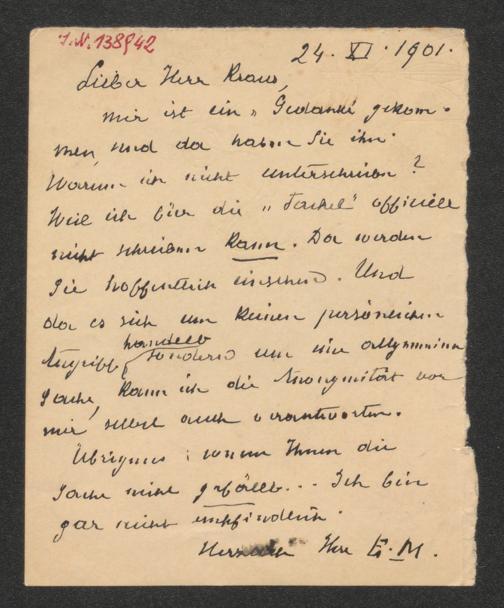 J.N. 138942
24. XI. 1901.
Lieber Herr Kraus,
mir ist ein „Gedanke“ gekom-
men, und da haben Sie ihn.
Warum ich nicht unterschreibe?
Weil ich für die „Fackel“ officiell
nicht schreiben kann. Das werden
Sie hoffentlich einsehen. Und
da es sich um keinen persönlichen
Angriff handelt sondern um eine allgemeine
Sache, kann ich die Anonymität vor
mir selbst auch verantworten.
Übrigens: wenn Ihnen die
Sache nicht gefällt... Ich bin
gar nicht empfindlich.
Herzlich Ihr E. M.